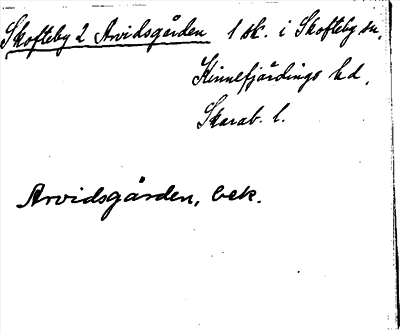 Skofteby 2 Arvidsgården 1 sk. i Skofteby sn,
Kinnefjärdings hd,
Skarab. l.
Arvidsgården, bek.